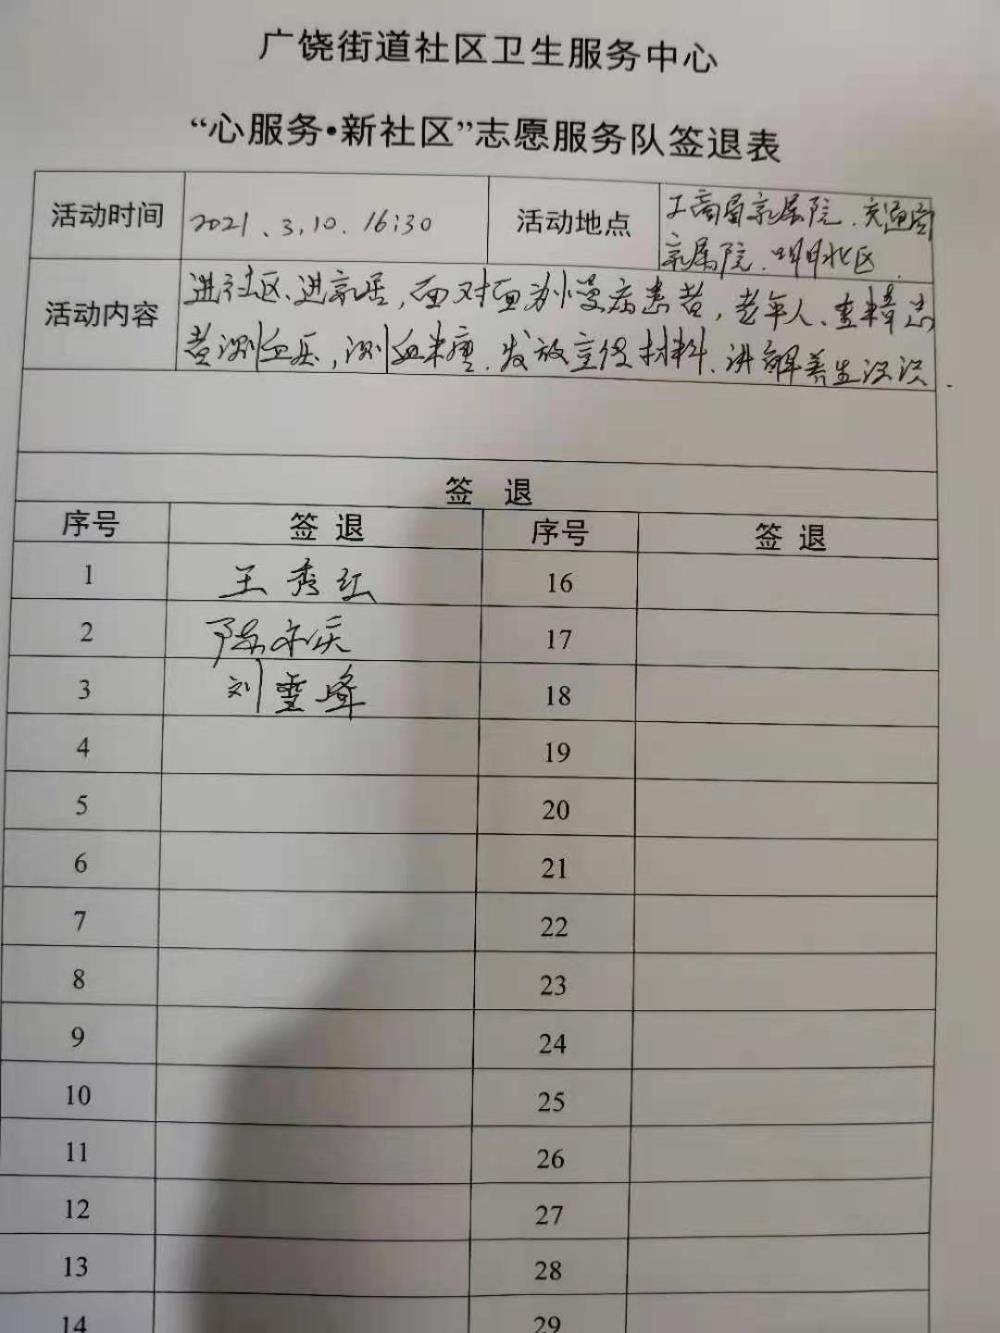 广饶街道社区卫生服务中心
“心服务•新社区”志愿服务队签退表
活动时间 2021、3、10、16:30 活动地点 工商局家属院、交通局
家属院、明月北区
活动内容 进社区、进家居,面对面为小慢病患者,老年人、重精患
者测血压,测血米糖、发放宣传材料、讲解养生
签 退
序号 签 退 序号 签 退
1 王秀红 16
2 陈 庆 17
3 刘雪峰 18
4 19
5 20
6 21
7 22
8 23
9 24
10 25
11 26
12 27
13 28
14 29